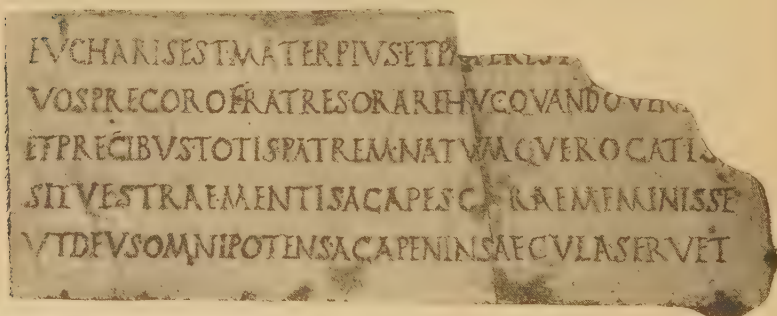 EVCHARISEST·MATERPIVS·ETPATEREST
VOSPRECOROFRATRESORAREHVCQVANDOVENI
ETPRECIBVSTOTISPATREM·NATVMQVEROGATIS
SITVESTRAE·MENTISAGAPESCARAEMEMINISSE
VTDEVSOMNIPOTENSAGAPENINSAECVLASERVET